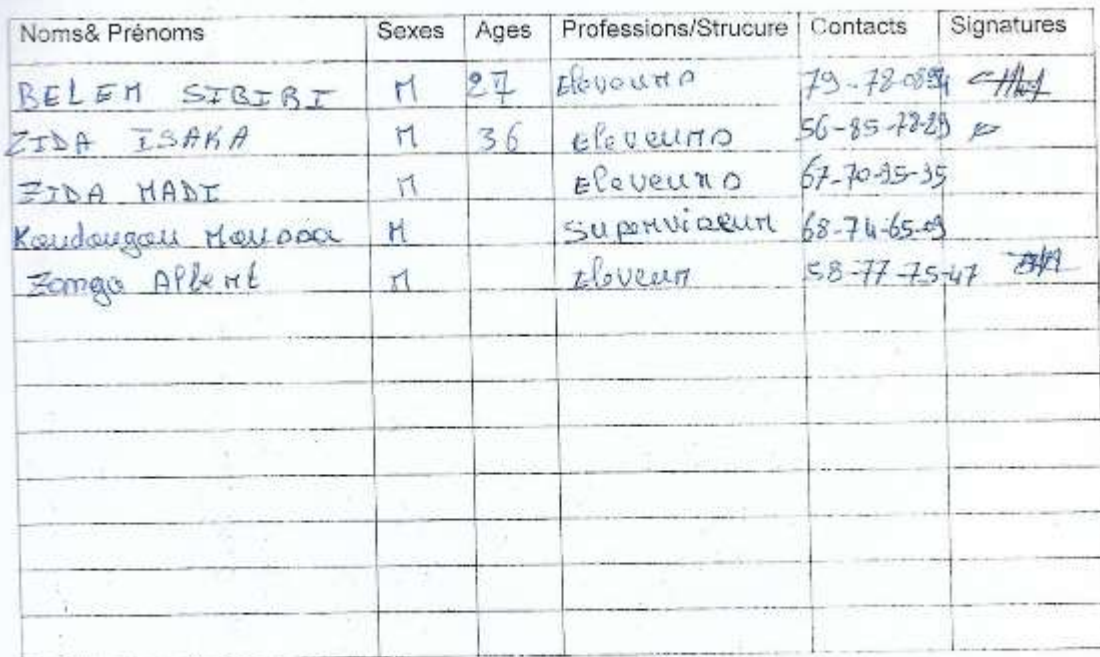 Noms& Prénoms Sexes Ages Professions/Strucure Contacts Signatures
BELEM SIBIRI M 27 Eleveurs 79-78-0894
ZIDA ISAKA M 36 Eleveurs 56-85-78-29
ZIDA MADI M Eleveurs 67-70-95-35
Koudougou Moussa M Superviseur 68-74-65-09
Zongo Albert M Eleveur 58-77-75-47